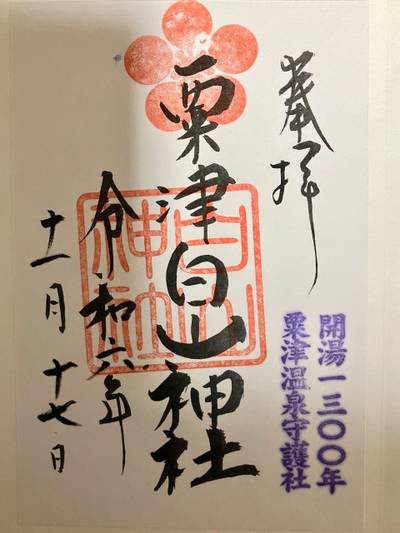 奉拝
開湯一三〇〇年
粟津温泉守護社
粟津白山神社
白山神社
令和六年
十一月十七日